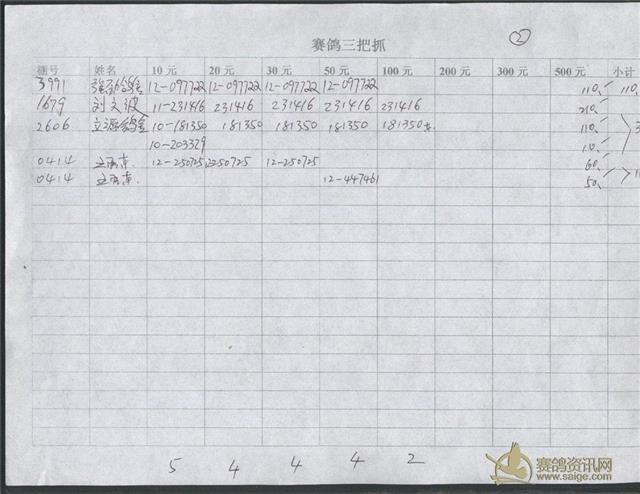 赛鸽三把抓 ②
棚号 姓名 10元 20元 30元 50元 100元 200元 300元 500元 小计
3991 12-097722 12-097722 12-097722 12-097722 110. 110.
1679 刘文波 11-231416 231416 231416 231416 231416 210.
2606 立源鸽舍 10-181350 181350 181350 181350 181350 110.
10-203329 10.
0414 12-250725 250725 12-250725 60.
0414 12-447461 50.
5 4 4 4 2
赛鸽资讯网
www.saige.com